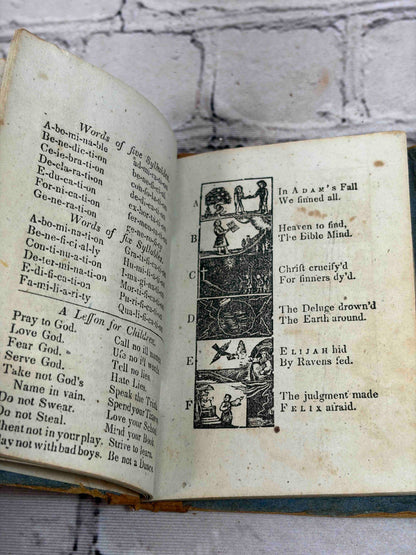 Words of five Syllables.
A-bo-mi-na-ble
Be-ne-dic-ti-on
Ce-le-bra-ti-on
De-cla-ra-ti-on
E-du-ca-ti-on
For-ni-ca-ti-on
Ge-ne-ra-ti-on
Words of six Syllables.
A-bo-mi-na-ti-on
Be-ne-fi-ci-al-ly
Con-ti-nu-a-ti-on
De-ter-mi-na-ti-on
E-di-fi-ca-ti-on
Fa-mi-li-a-ri-ty
A Lesson for Children.
Pray to God. Call no ill
Love God. Use no ill
Fear God. Tell no lies.
Serve God. Hate Lies.
Take not God's Speak the
Name in vain. Spend your Time
Do not Swear. Love your School
Do not Steal. Mind your Book
Cheat not in your play. Strive to learn.
Play not with bad boys. Be not a Dunce.
A In ADAM's Fall
We sinned all.
B Heaven to find,
The Bible Mind.
C Christ crucify'd
For sinners dy'd.
D The Deluge drown'd
The Earth around.
E ELIJAH hid
By Ravens fed.
F The judgment made
FELIX afraid.